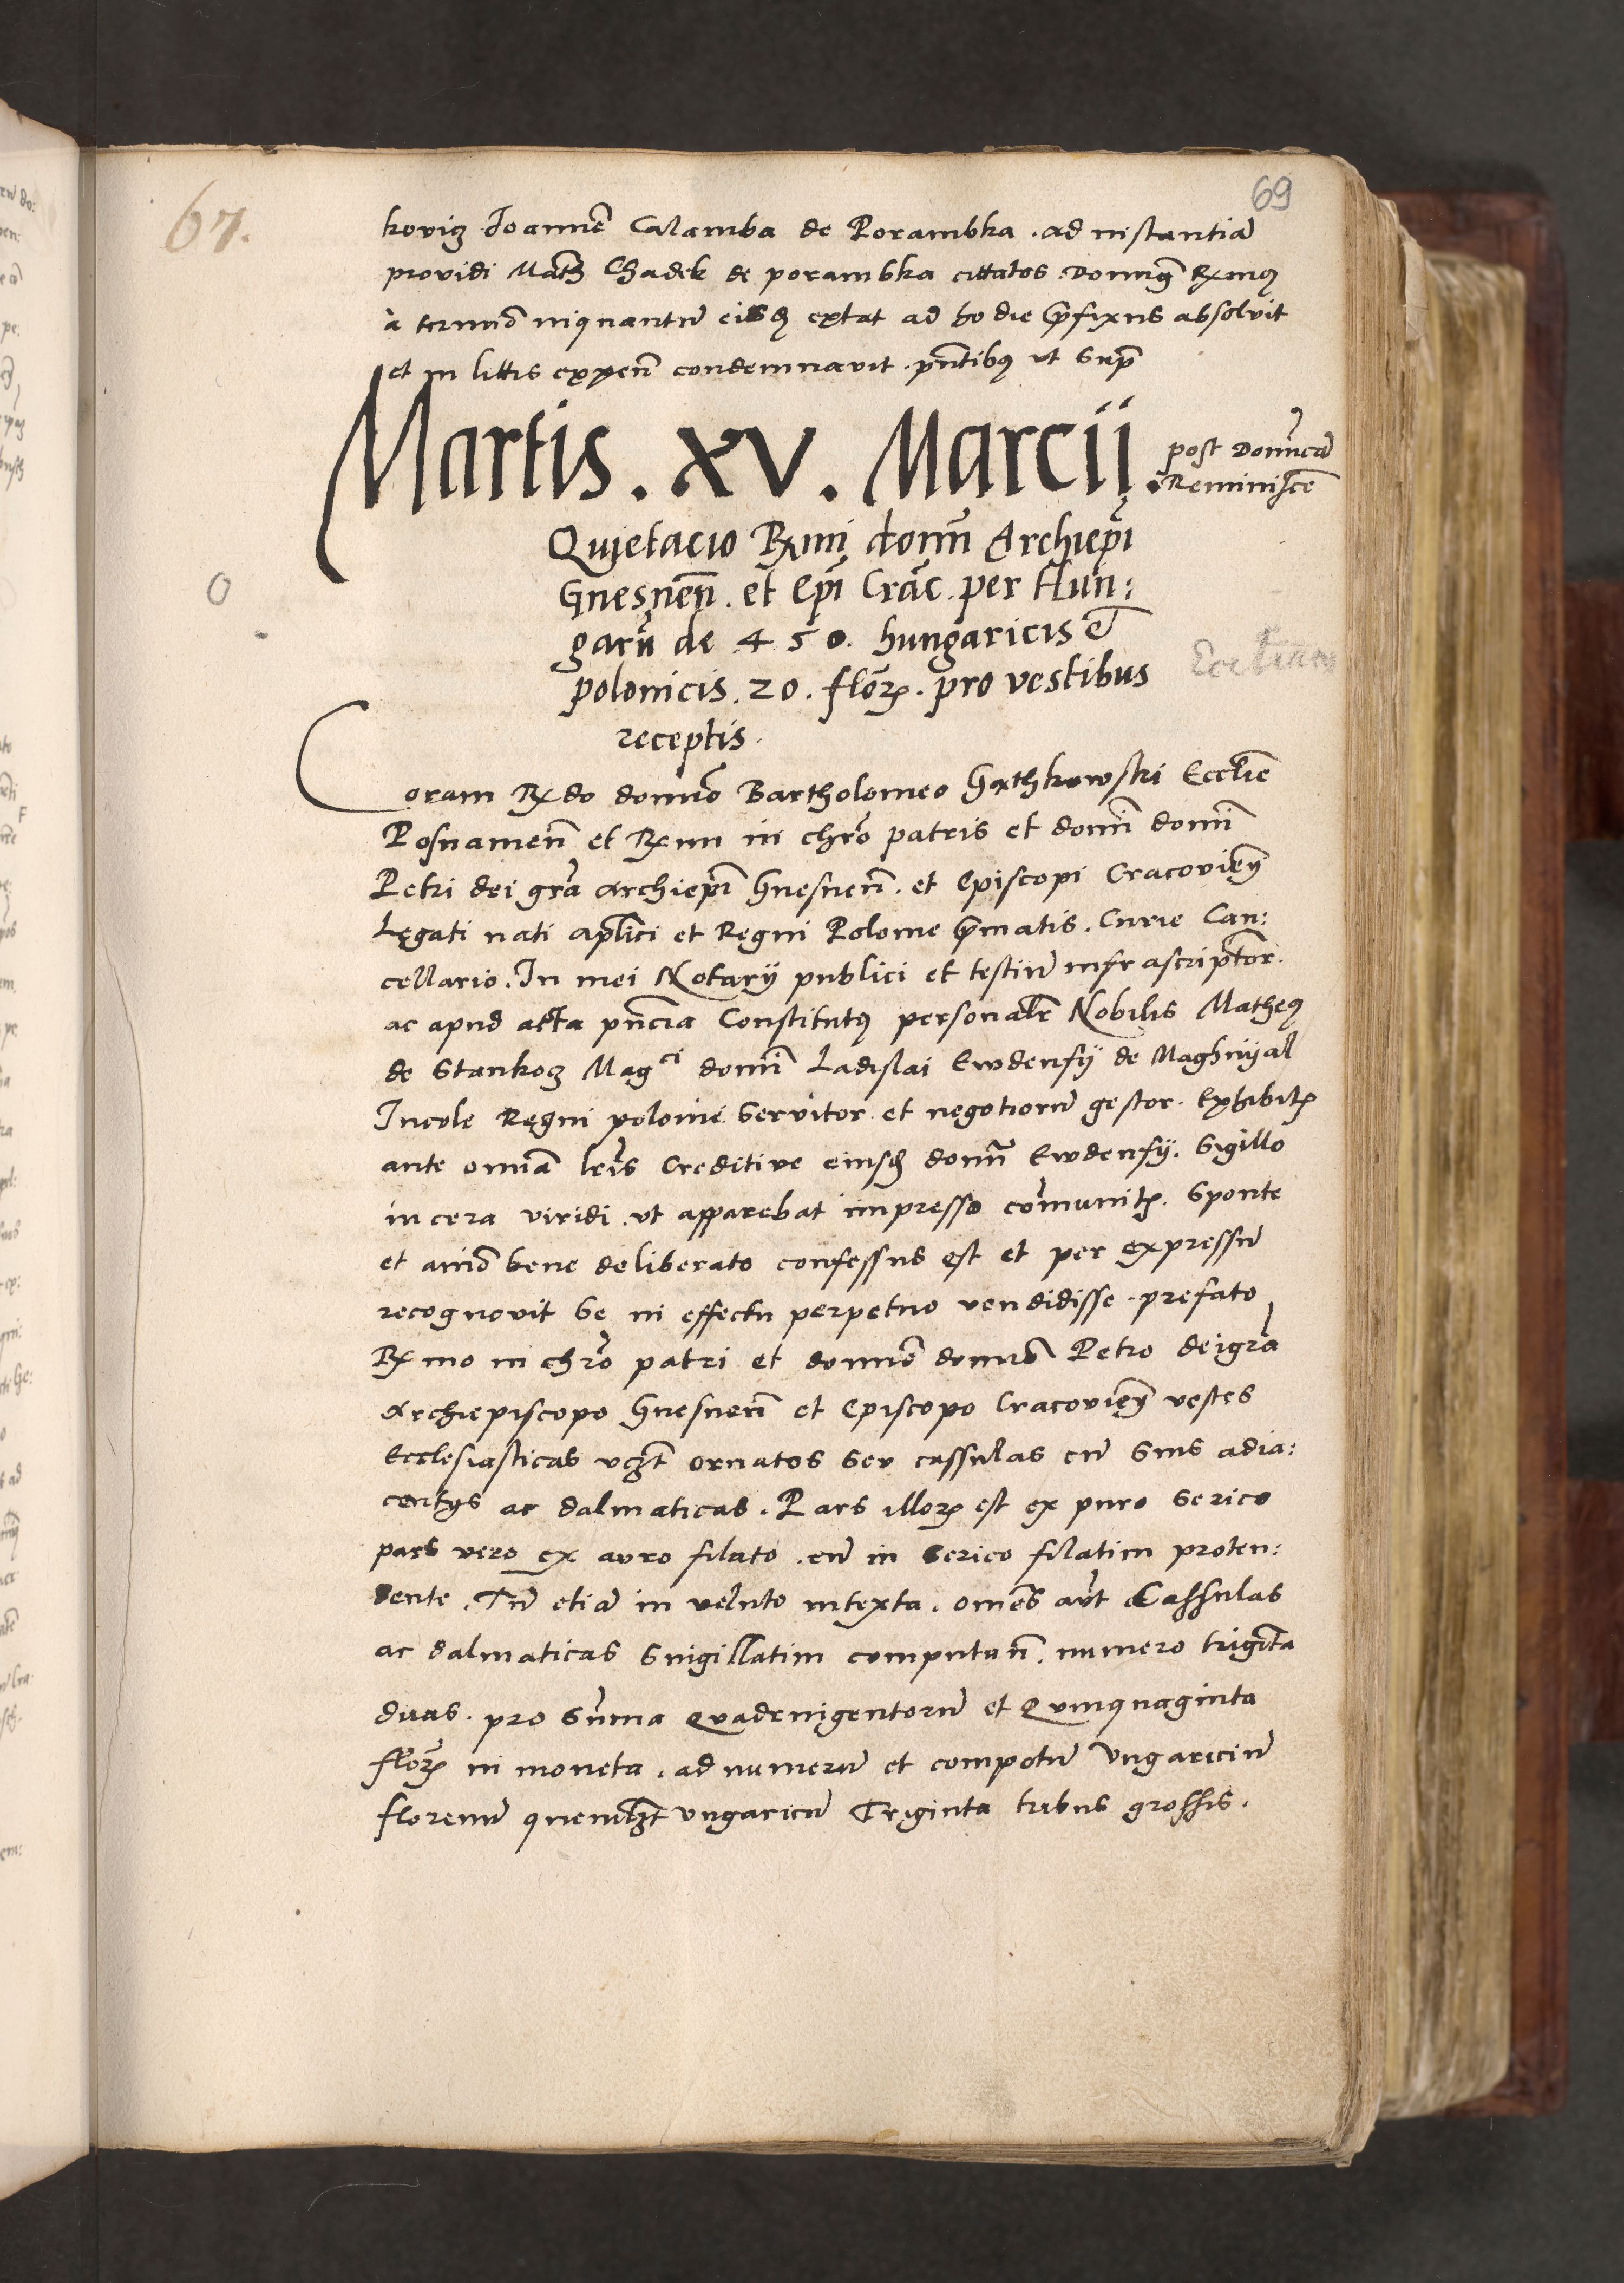 67.
69
kovicz Joannē Calamba de Porambka . ad instantiā
providi Math Chadek de porambka cittatos Dominꝰ Rxmꝰ
à termīo inquantū eisdē extat ad hodie p̄fixus absolvit
et in littis expen̄ condemnavit . pn̄tibꝰ ut sup̄
Martis . XV . Marcij
post Domīcā
Reminiscē
Quietacio Rxmi domī Archiep̄i
Gnesnen̄ . et Ep̄i Crac̄ . per Hun:
garū de 450 . hungaricis &
polonicis . 20 . flor̄ . pro vestibus
receptis .
Coram Rxdo domīo Bartholomeo Gathkowski Eccl̄ie
Posnamen̄ et Rxmi in chr̄o patris et domī domī
Petri dei gr̄a Archiep̄i Gnesnen̄ . et Episcopi Cracovien̄
Legati nati apl̄ici et Regni Polonie p̄matis . Curie Can:
cellario . In mei Notarij publici et testiū infrascriptor̄ .
ac apud acta pn̄cia Constitutꝰ personalr̄ Nobilis Matheꝰ
de Stankocz Magci domī Ladislai Ewdenfij de Maghnijal
Incole Regni polonie servitor et negotiorū gestor . Exhibitꝭ
ante omīa lr̄is Creditive eiusdē domī Ewdenfij . Sigillo
in cera viridi . ut apparebat impresso cōmunitꝭ . Sponte
et aniō bene deliberato confessus est et per expressū
recognovit se in effectu perpetuo vendidisse . prefato
Rxmo in chr̄o patri et domīo domīo Petro dei gr̄a
Archiepiscopo Gnesnen̄ et Episcopo Cracovien̄ vestes
Ecclesiasticas vczt̄ ornatos seu cassulas cū suis adia:
centijs ac dalmaticas . Pars illor̄ est ex puro serico
pars vero ex auro filato . cū in serico filatim proten:
dente . Tū etiā in veluto intexta . om̄es aūt Cassulas
ac dalmaticas singillatim computan̄ . numero triginta
duas . pro sūma Quadringentorū et Quinquaginta
flor̄ in moneta . ad numerū et compotū Ungariciū
florenū quemlizt̄ ungaricū Triginta tribus grossis .